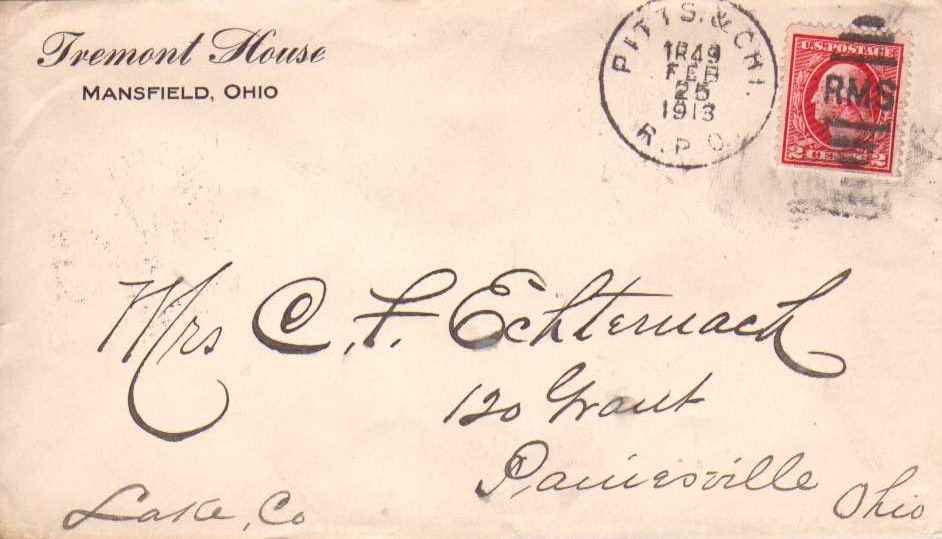 Tremont House
MANSFIELD, OHIO
PITTS. & CHI.
TR49
FEB
25
1913
R.P.O.
U.S. POSTAGE
RMS
2 CENTS 2
Mrs C. F. Echternach
120 Grant
Painesville Ohio
Lake, Co